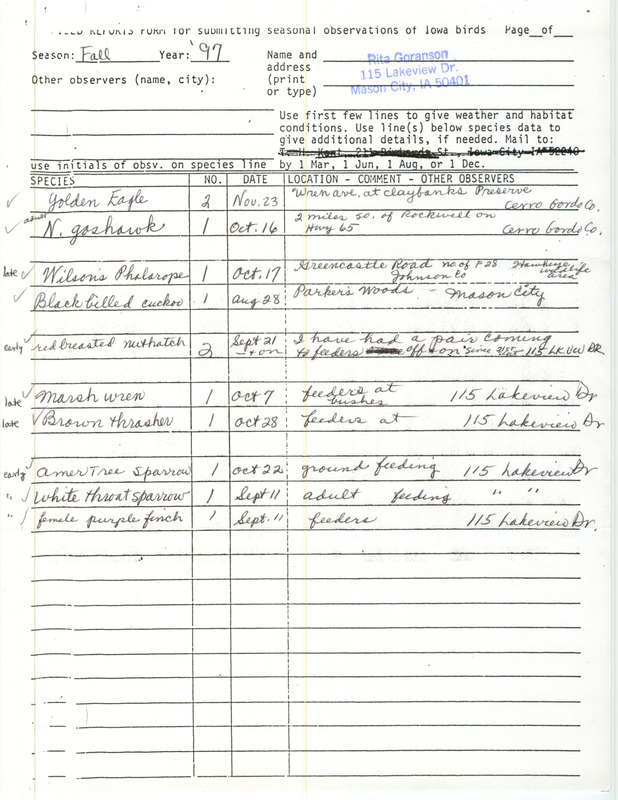 REPORTS FORM for submitting seasonal observations of Iowa birds Page of
Season: Fall Year: '97
Name and address (print or type)
Rita Goranson
115 Lakeview Dr.
Mason City, IA 50401
Other observers (name, city):
Use first few lines to give weather and habitat
conditions. Use line(s) below species data to
give additional details, if needed. Mail to:
St., Iowa City IA 52240
use initials of obsv. on species line by 1 Mar, 1 Jun, 1 Aug, or 1 Dec.
SPECIES NO. DATE LOCATION - COMMENT - OTHER OBSERVERS
✓ Golden Eagle 2 Nov. 23 Wren ave. at claybanks Preserve Cerro Gordo Co.
✓ adult N. goshawk 1 Oct. 16 2 miles so. of Rockwell on Hwy 65 Cerro Gordo Co.
late ✓ Wilson's Phalarope 1 Oct. 17 Greencastle Road no. of F28 Johnson Co Hawkeye wildlife area
✓ Black billed cuckoo 1 aug 28 Parker's Woods - Mason City
early ✓ red breasted nuthatch 2 Sept 21 → + on I have had a pair coming
to feeders off + on since 115 LK VW DR
late ✓ Marsh wren 1 Oct 7 feeders at bushes 115 Lakeview Dr
late ✓ Brown thrasher 1 Oct 28 feeders at 115 Lakeview Dr
early ✓ amer Tree Sparrow 1 Oct 22 ground feeding 115 Lakeview Dr
" ✓ White throat sparrow 1 Sept 11 adult feeding " "
" ✓ female purple finch 1 Sept. 11 feeders 115 Lakeview Dr.